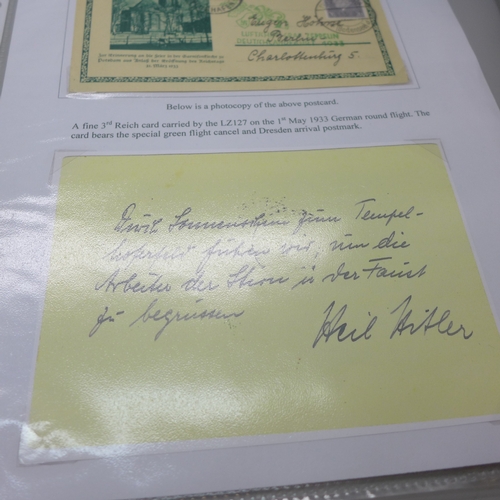 Zur Erinnerung an die
Potsdam
Berlin
Charlottenburg 5.
Below is a photocopy of the above postcard.
A fine 3rd Reich card carried by the LZ127 on the 1st May 1933 German round flight. The
card bears the special green flight cancel and Dresden arrival postmark.
Durch Sonnenschein zum Tempel-
hoferfeld fuhren wir, um die
Arbeiter der Stirn u der Faust
zu begrüssen
Heil Hitler